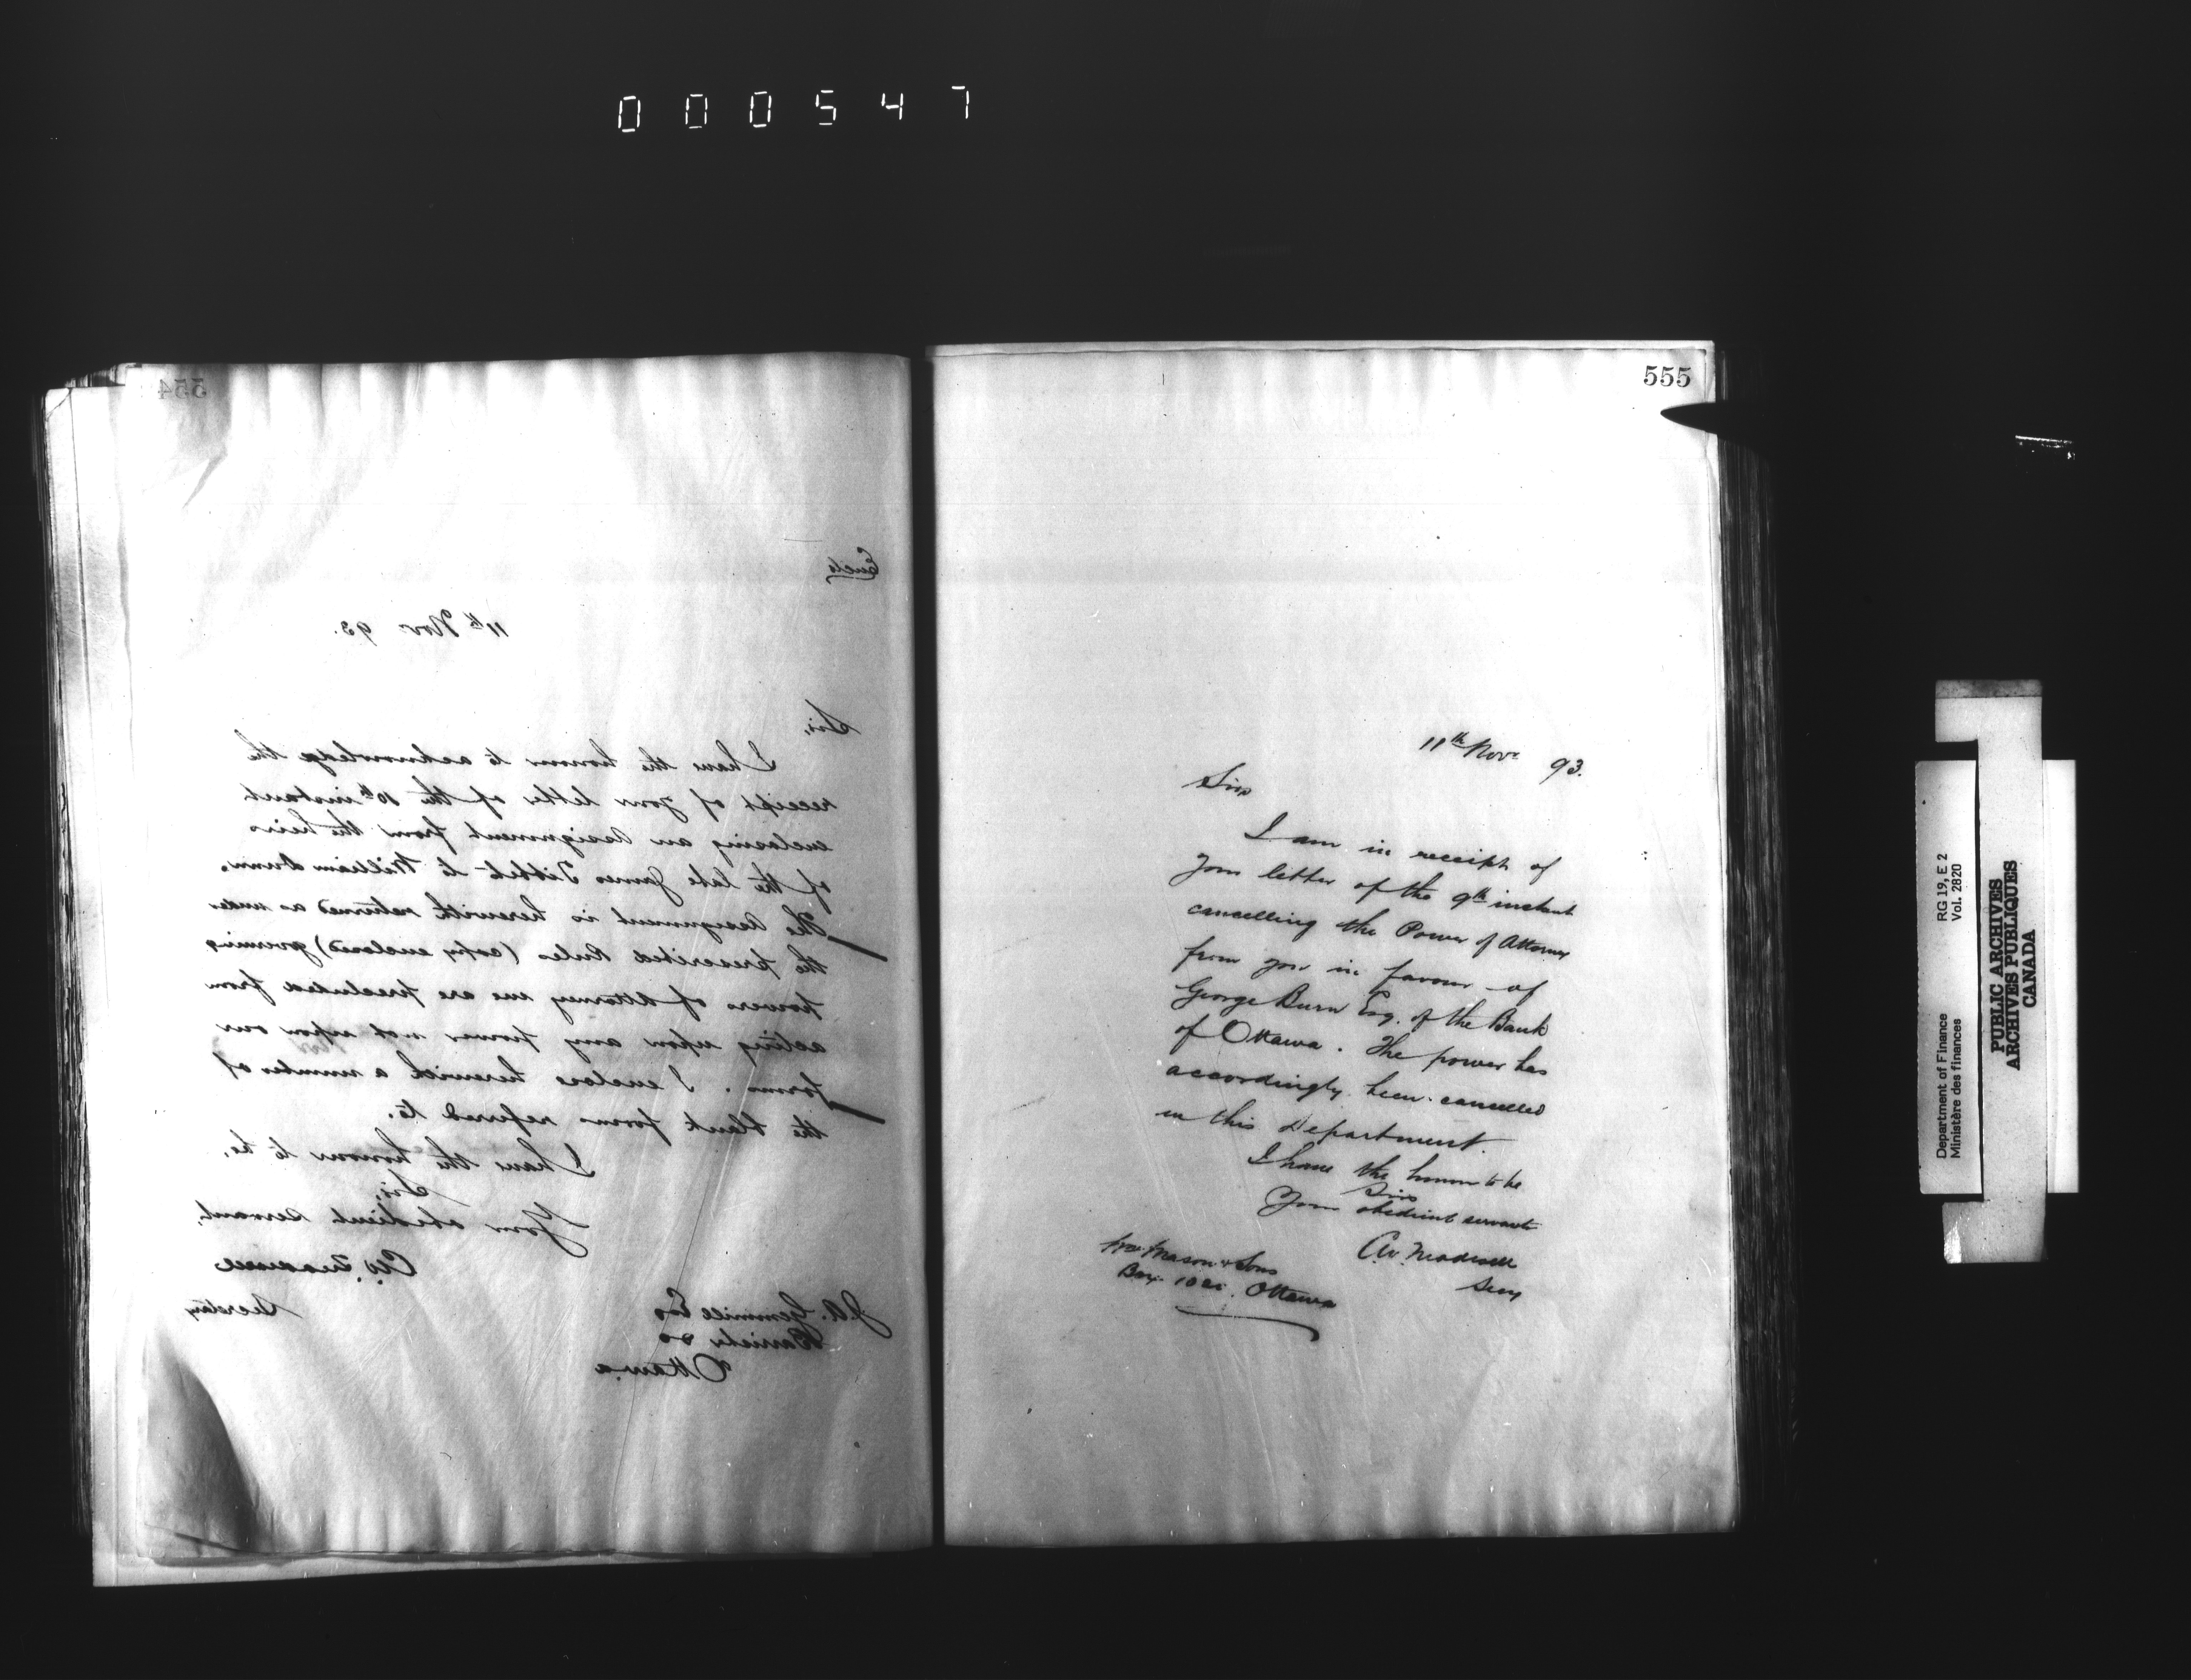 000547
554
Encls
11th Nov 93.
Sir,
I have the honour to acknowledge the
receipt of your letter of the 10th instant
enclosing an assignment from the heirs
of the late James Tibbet to William Dunn.
The assignment is herewith returned as under
the prescribed Rules (copy enclosed) governing
powers of attorney we are precluded from
acting upon any power not upon our
forms. I enclose herewith a number of
the blank forms referred to.
I have the honour to be,
Sir,
Your obedient servant,
Secretary
J.A. Gemmill Esq
Barrister &c
Ottawa
555
11th Nov. 93.
Sirs
I am in receipt of
your letter of the 9th instant
cancelling the Power of Attorney
from you in favour of
George Burn Esq. of the Bank
of Ottawa. The power has
accordingly been cancelled
in this Department.
I have the honour to be
Sirs
Your obedient servant
Secy
Wm. Mason & Sons
Box Ottawa
Department of Finance
Ministère des finances
RG 19, E 2
Vol. 2820
PUBLIC ARCHIVES
ARCHIVES PUBLIQUES
CANADA